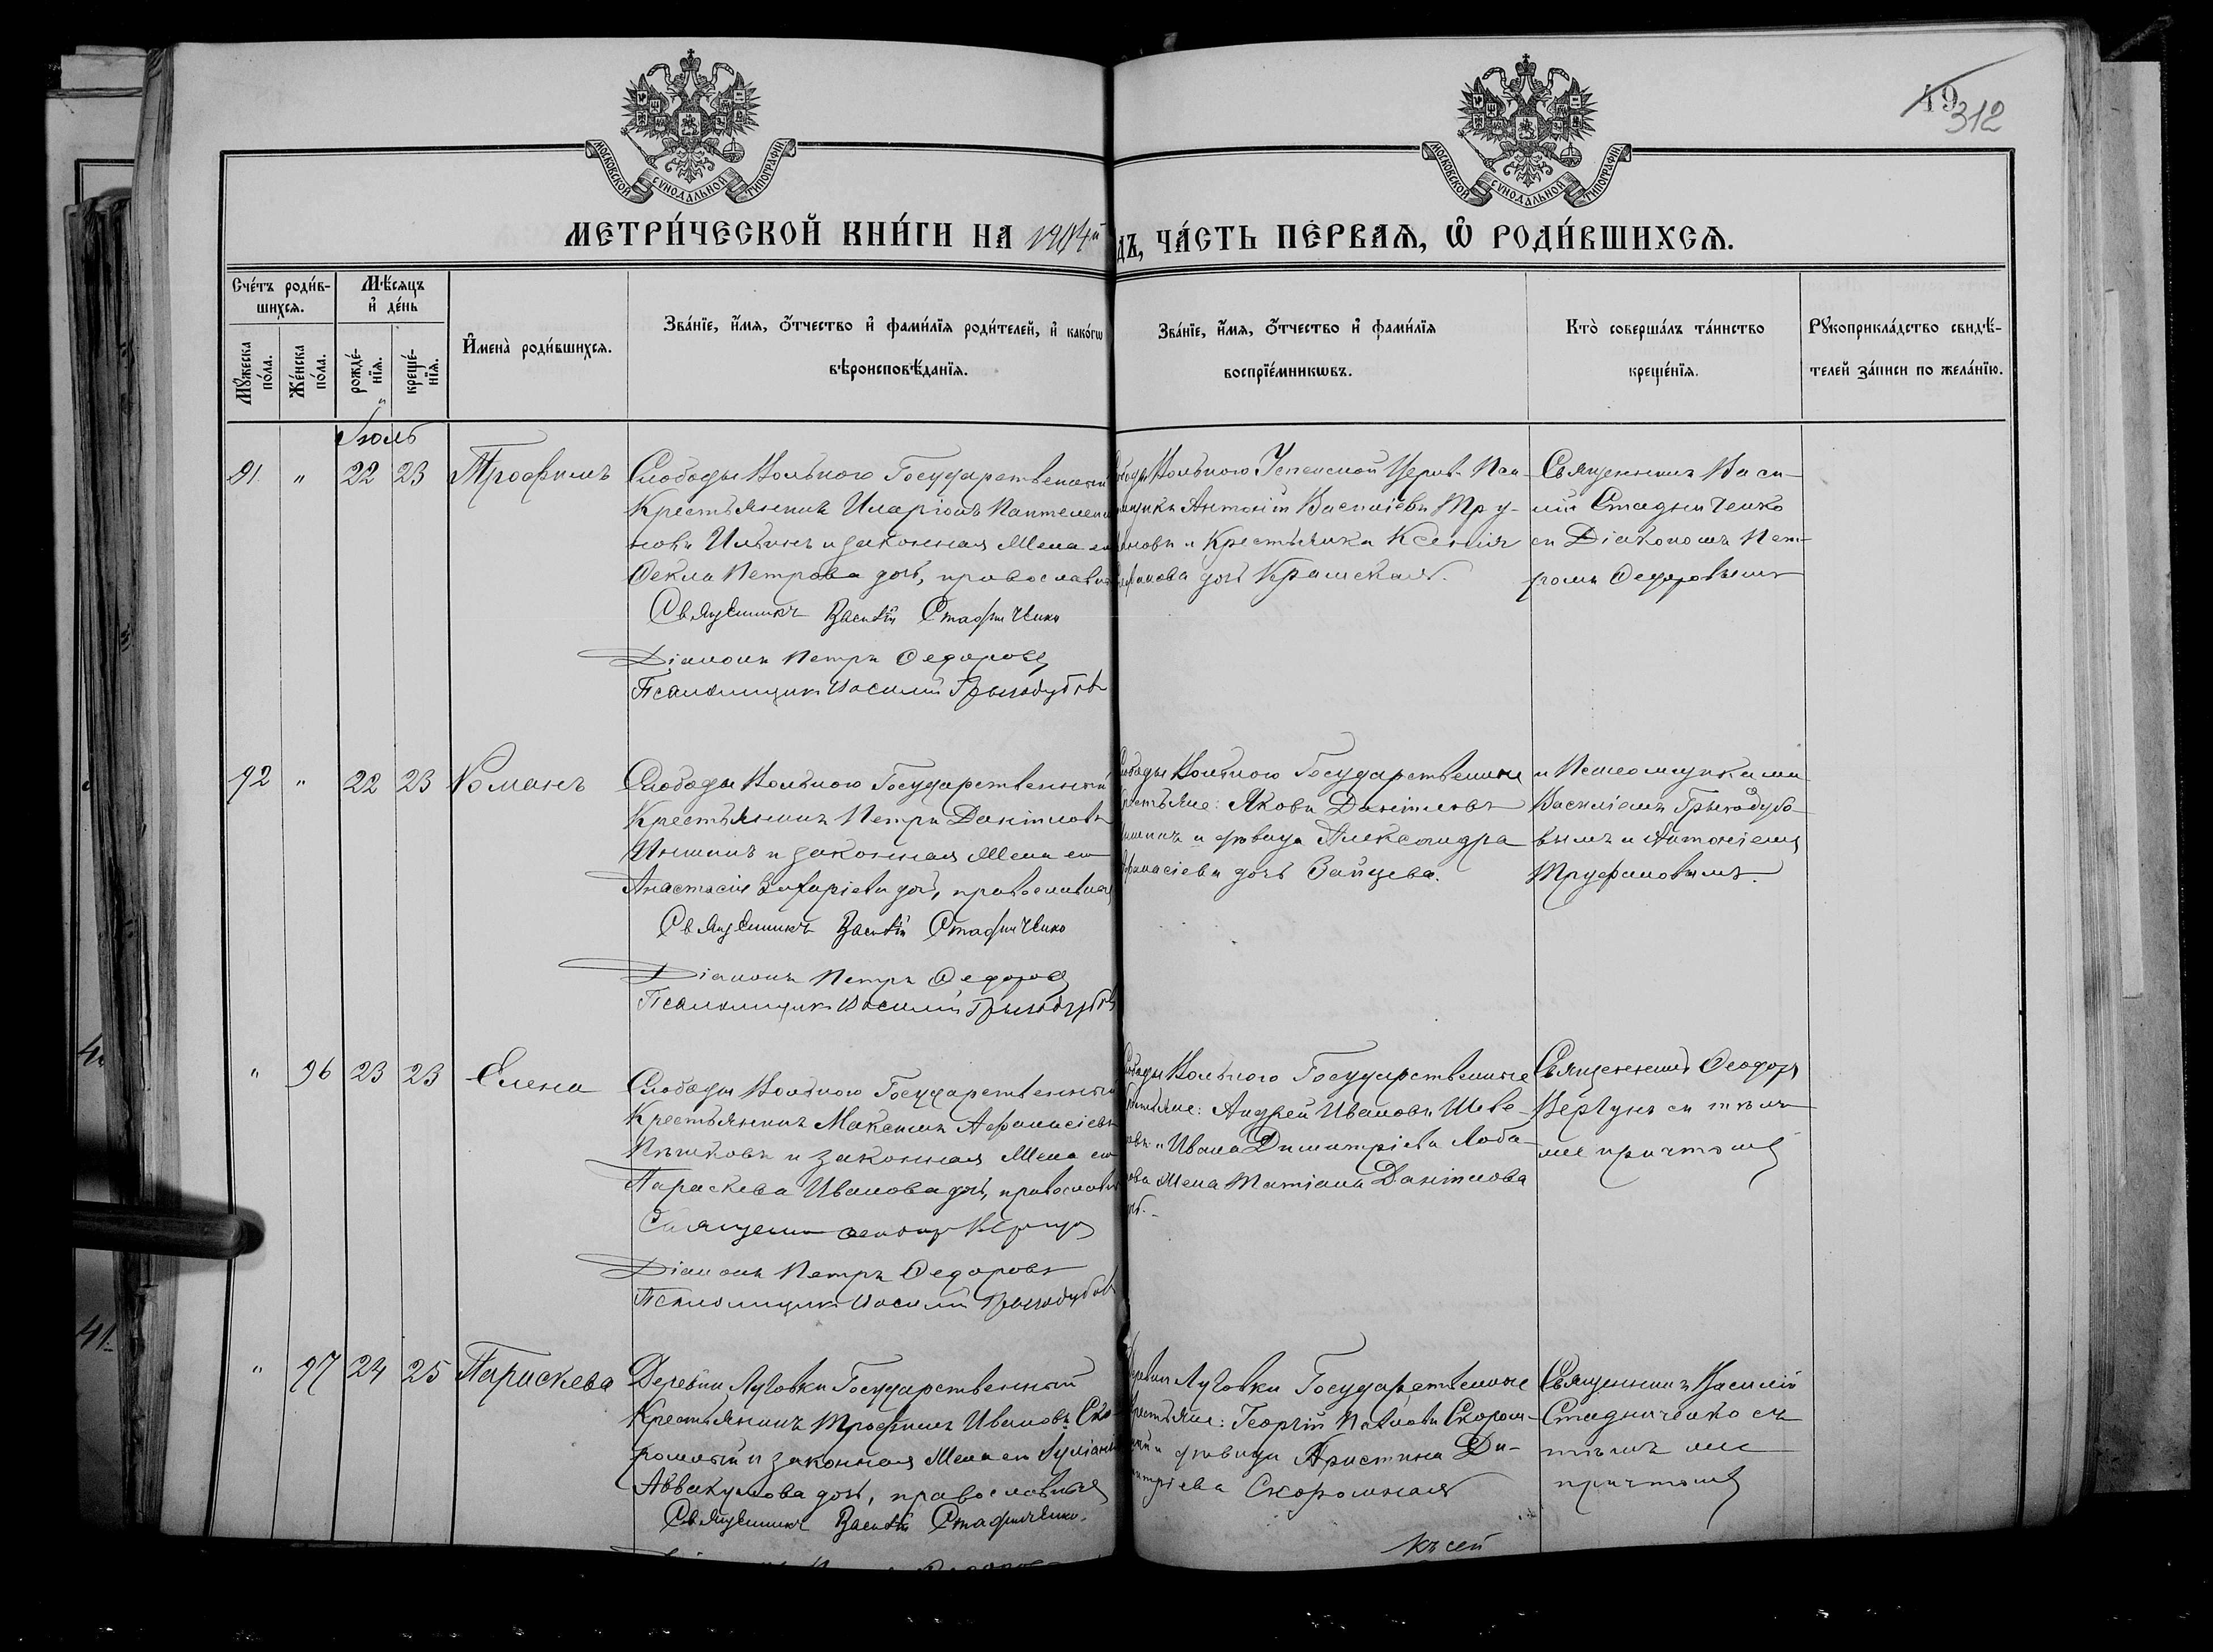 49
312
МОСКОВСКОЙ СѴНОДАЛЬНОЙ ТИПОГРАФІИ
МОСКОВСКОЙ СѴНОДАЛЬНОЙ ТИПОГРАФІИ
МЕТРИ́ЧЕСКОЙ КНИ́ГИ НА 1904й
ДЪ, ЧА́СТЬ ПЕ́РВАѦ, Ѡ҆ РОДИ́ВШИХСѦ.
Сче́тъ роди́в-
шихсѧ.
Мꙋ́жеска
по́ла.
Же́нска
по́ла.
Мѣ́сѧцъ
и҆ де́нь
рожде́-
нїѧ.
креще́-
нїѧ.
И҆мена̀ роди́вшихсѧ.
Зва́нїе, и҆́мѧ, ѻ҆́тчество и҆ фами́лїѧ роди́телей, и҆ како́гѡ
вѣроисповѣ́данїѧ.
Зва́нїе, и҆́мѧ, ѻ҆́тчество и҆ фами́лїѧ
воспрїе́мникѡвъ.
Кто̀ соверша́лъ та́инство
креще́нїѧ.
Рꙋкоприкла́дство свидѣ́-
телей за́писи по жела́нїю.
Іюль
91. " 22 23 Трофимъ
Слободы Вольного Государственный
Крестьянинъ Иларіонъ Пантелеймо
новъ Ильинъ и законная Жена его
Ѳекла Петрова дочь, православные
Священникъ Василій Стадниченко
Діаконъ Петръ Ѳедоровъ
Псаломщикъ Василій Грызодубовъ
Вольного Успенской Церкви Пса-
ломщикъ Антоній Васильевъ Тру-
фановъ и Крестьянка Ксенія
дочь
Священникъ Васи-
лій Стадниченко
съ Діакономъ Пет-
ромъ Ѳедоровымъ
92 " 22 23 Романъ
Слободы Вольного Государственный
Крестьянинъ Петръ Даніиловъ
и законная Жена его
Анастасія Захаріева дочь, православные
Священникъ Василій Стадниченко
Діаконъ Петръ Ѳедоровъ
Псаломщикъ Василій Грызодубовъ
Слободы Вольного Государственные
Крестьяне: Яковъ Даніиловъ
и дѣвица Александра
Аѳанасіева дочь Зайцева.
и Псаломщиками
Василіемъ Грызодубо-
вымъ и Антоніемъ
Труфановымъ.
" 96 23 23 Елена
Слободы Вольного Государственный
Крестьянинъ Максимъ Аѳанасіевъ
и законная Жена его
Параскева Иванова дочь, православные
Священникъ Ѳеодоръ Вергунъ
Діаконъ Петръ Ѳедоровъ
Псаломщикъ Василій Грызодубовъ
Слободы Вольного Государственные
Крестьяне: Андрей Ивановъ Шеве-
и Ивана Димитріева Лоба-
нова Жена Татіана Даніилова
дочь.
Священникъ Ѳеодоръ
Вергунъ съ тѣмъ
же причтомъ
" 97 24 25 Параскева
Деревни Луговки Государственный
Крестьянинъ Трофимъ Ивановъ Ско-
ромный и законная Жена его Іуліанія
Аввакумова дочь, православные
Священникъ Василій Стадниченко.
Деревни Луговки Государственные
Крестьяне: Георгій Павловъ Скором-
ный и дѣвица Христина Ди-
митріева Скоромная
Къ сей
Священникъ Василій
Стадниченко съ
тѣмъ же
причтомъ